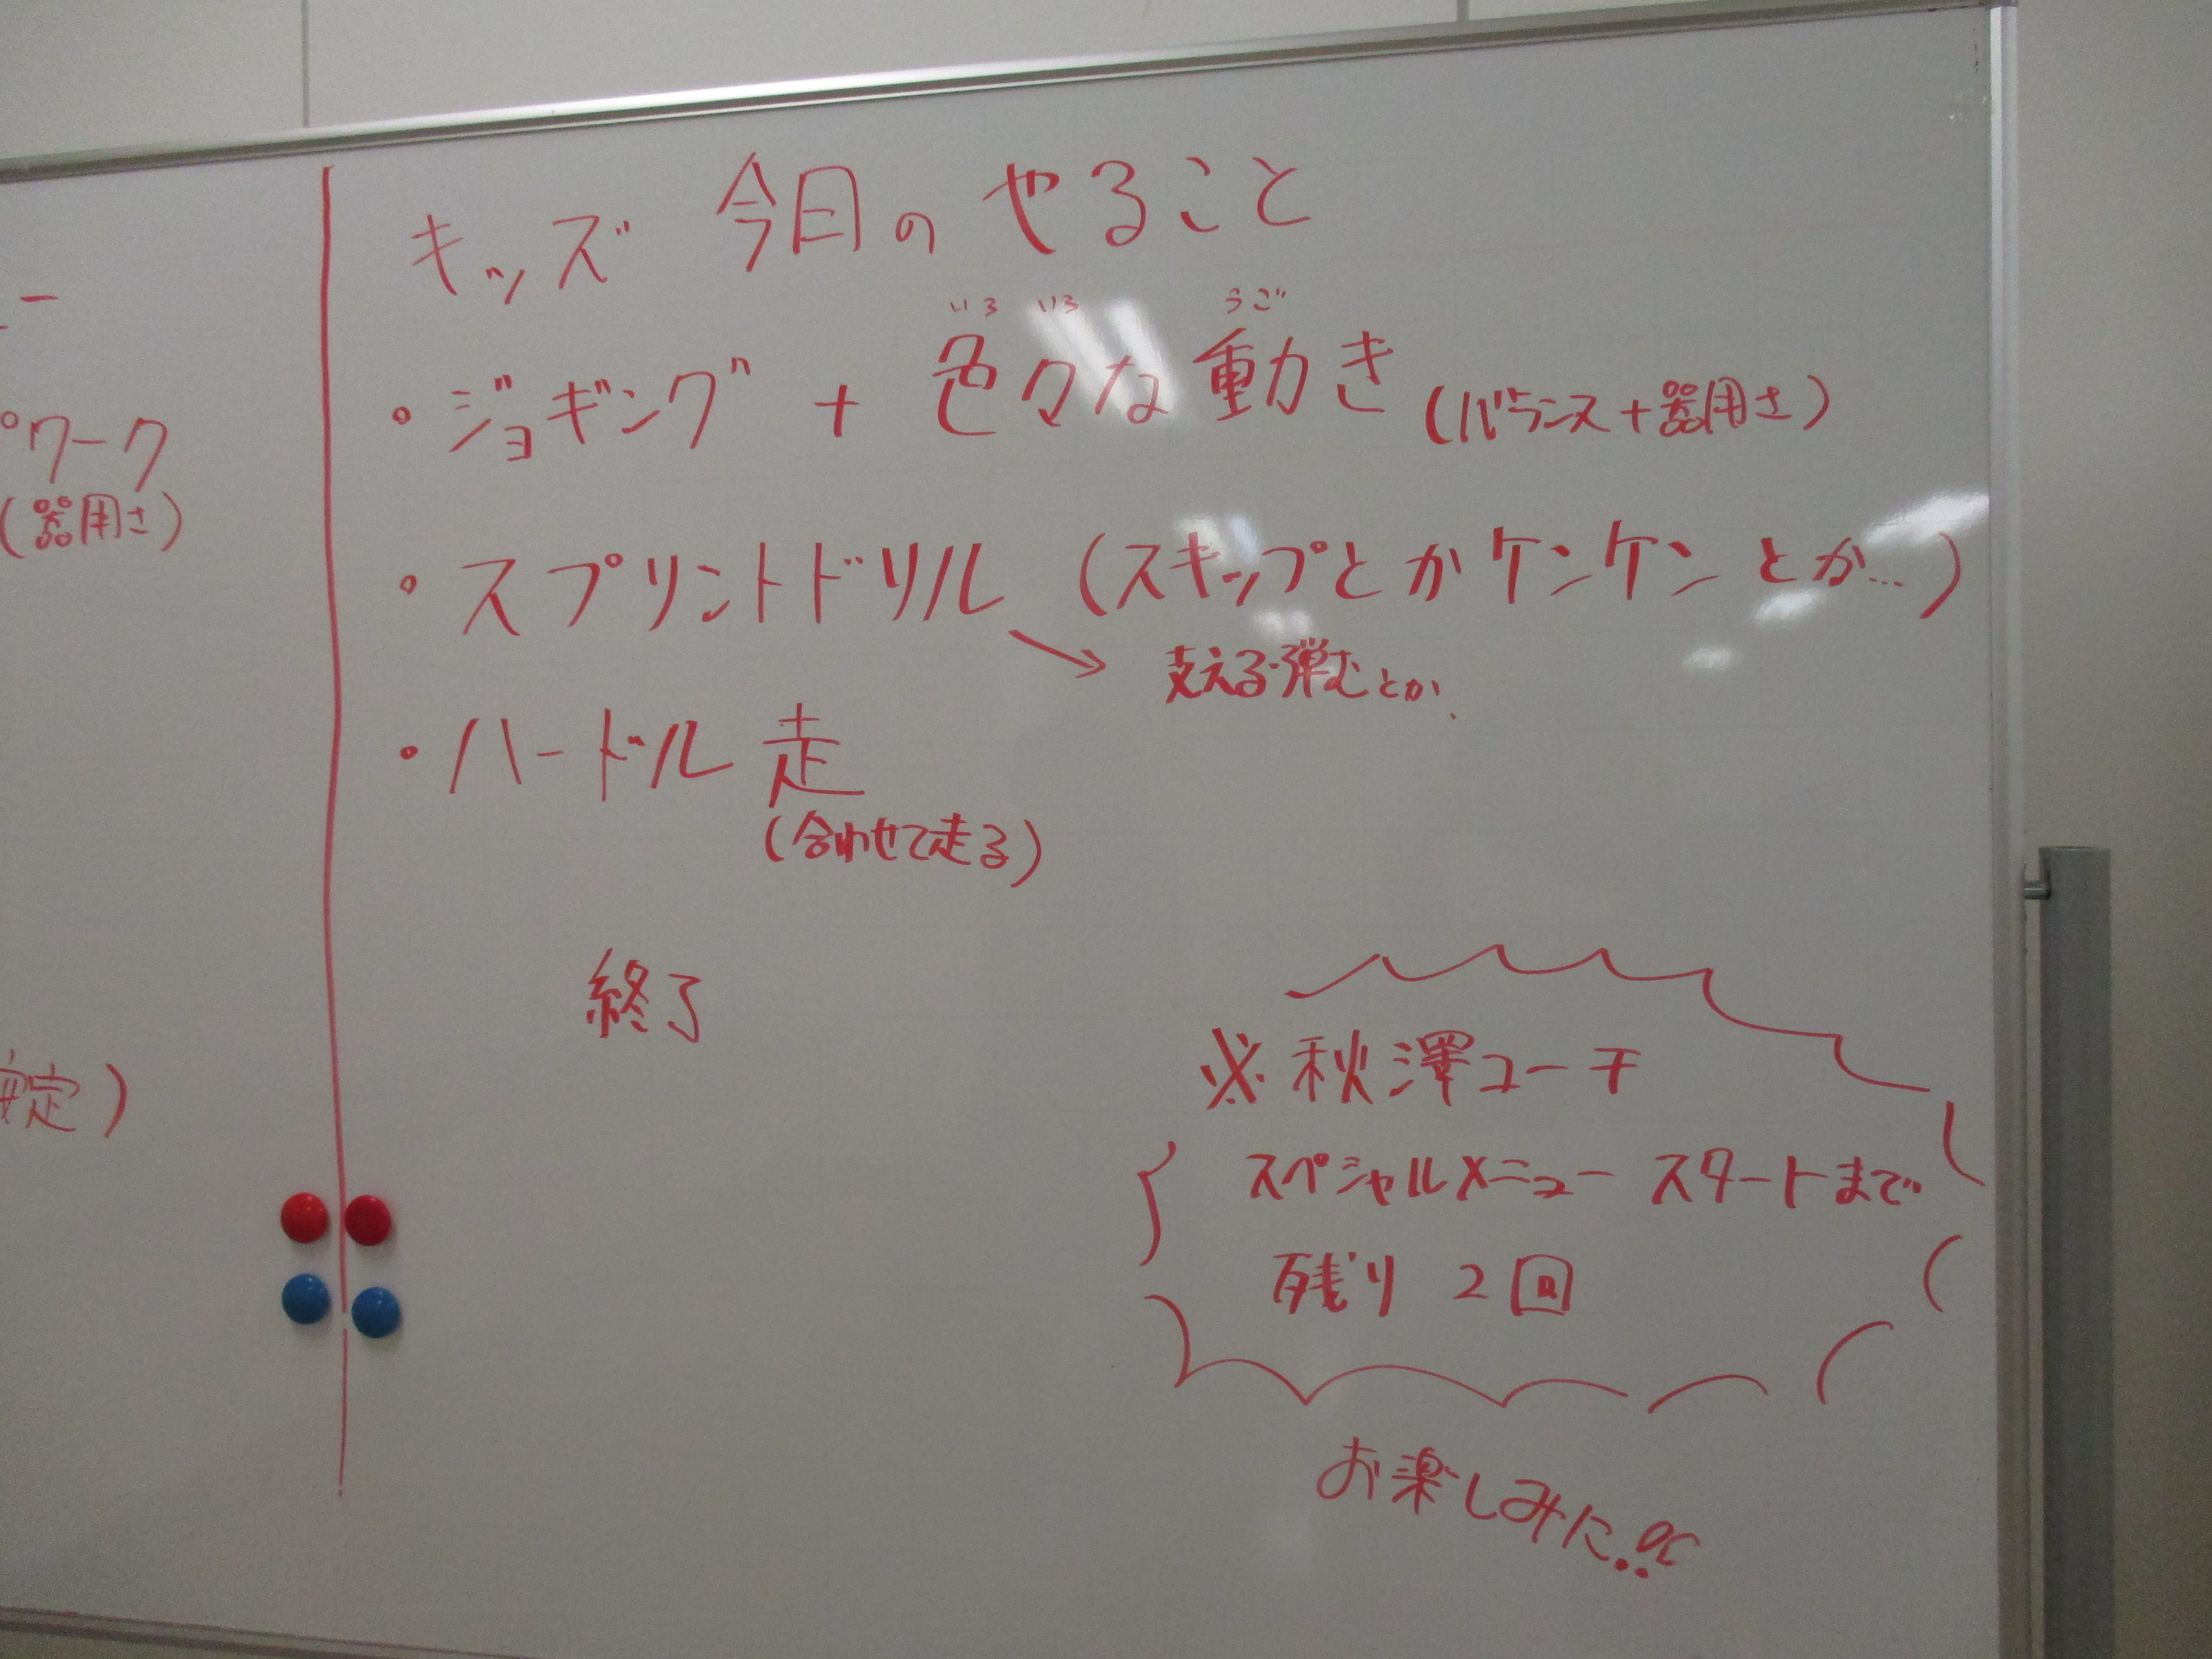 ー
ワーク
(器用さ)
定)
キッズ 今日のやること
いろ いろ うご
・ジョギング + 色々な動き (バランス+器用さ)
・スプリントドリル (スキップとかケンケンとか…)
→ 支える・弾むとか、
・ハードル走
(合わせて走る)
終了
※秋澤コーチ
スペシャルメニュー スタートまで
残り 2回
お楽しみに!!